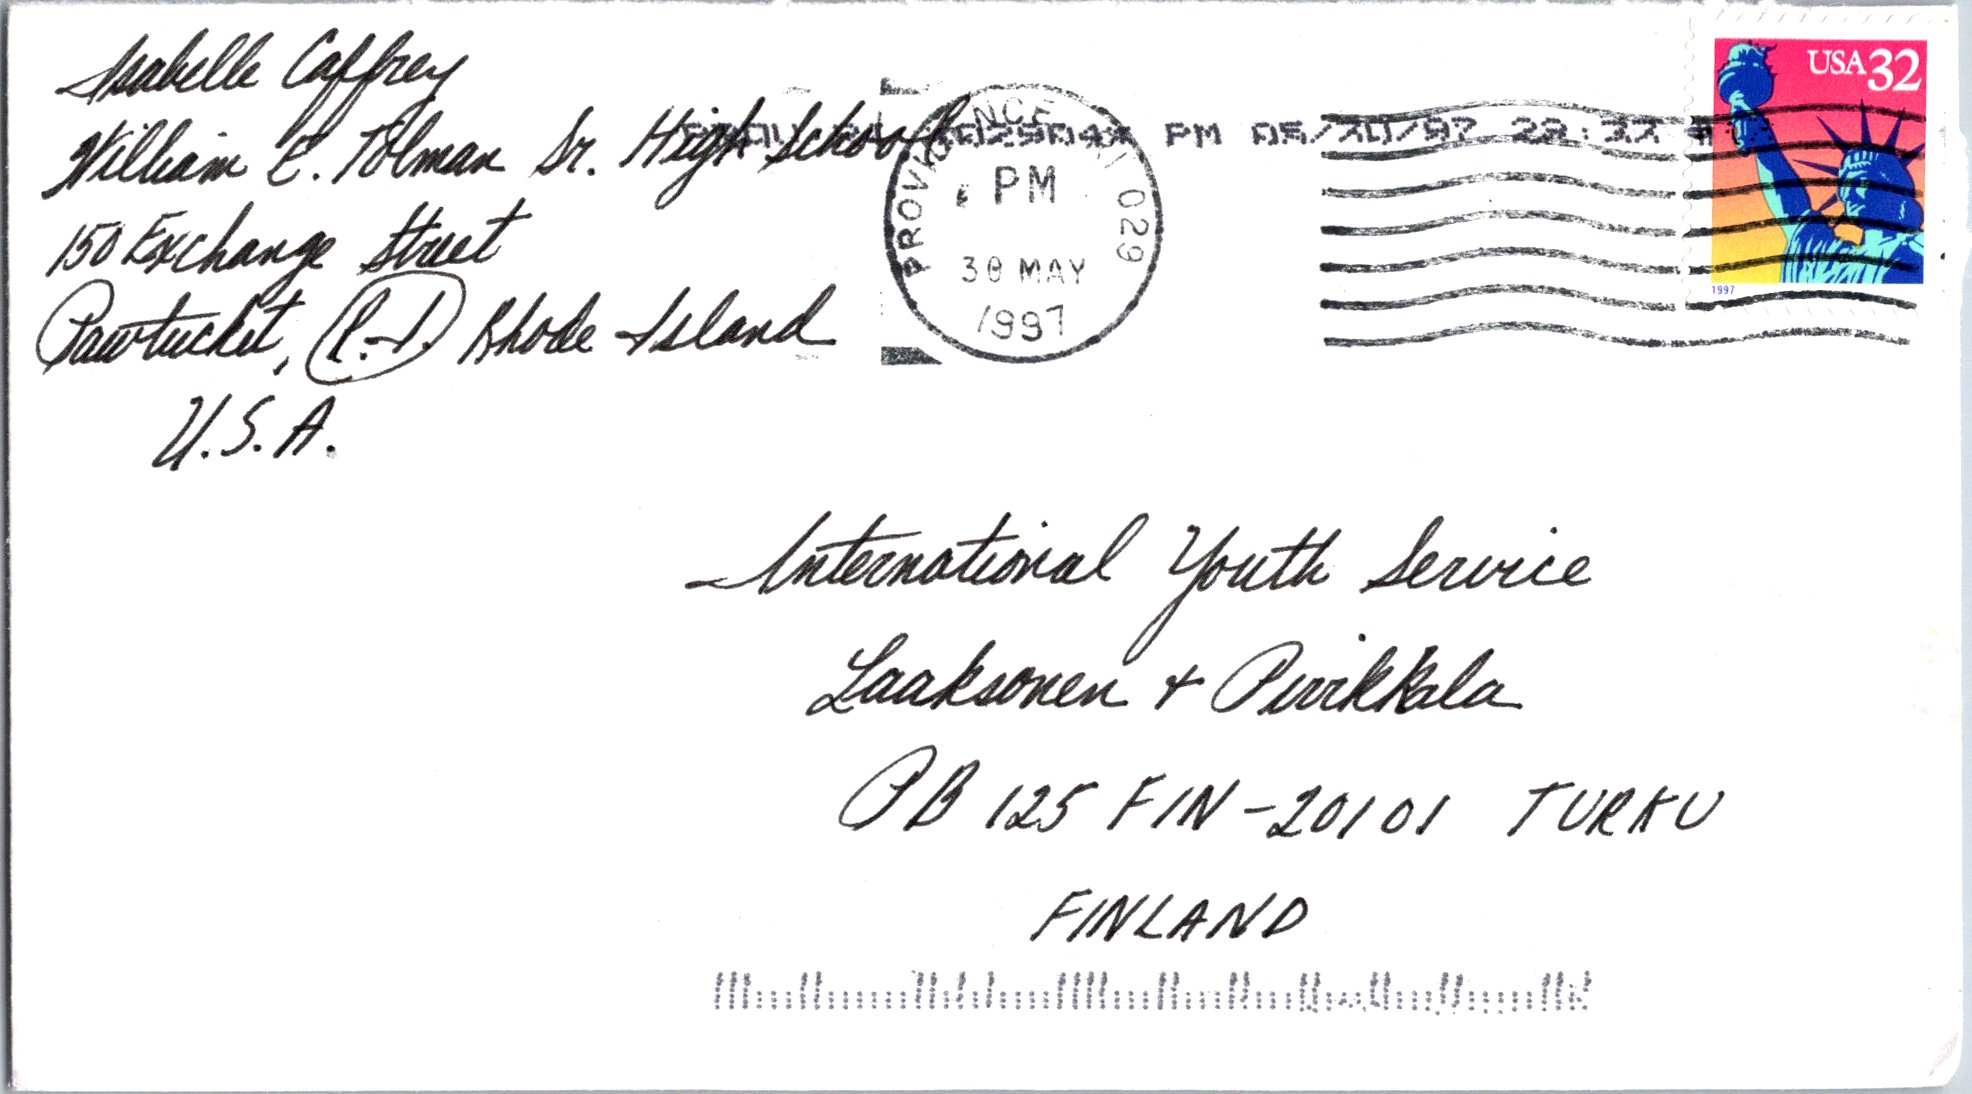 Isabelle Caffrey
William E. Tolman Sr. High School
150 Exchange Street
Pawtucket, R.I. Rhode Island
U.S.A.
PROVIDENCE RI 029
PM
30 MAY
1997
PM 05/30/97 22:37 #
USA 32
1997
International Youth Service
Laaksonen + Pirikkala
PB 125 FIN-20101 TURKU
FINLAND